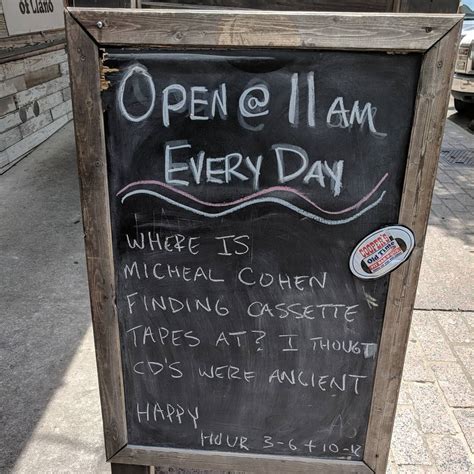 of Llano
OPEN @ 11 AM
EVERY DAY
WHERE IS
MICHEAL COHEN
FINDING CASSETTE
TAPES AT? I THOUGT
CD'S WERE ANCIENT
HAPPY
HOUR 3-6 + 10-12
COOPER'S
OLD TIME PIT